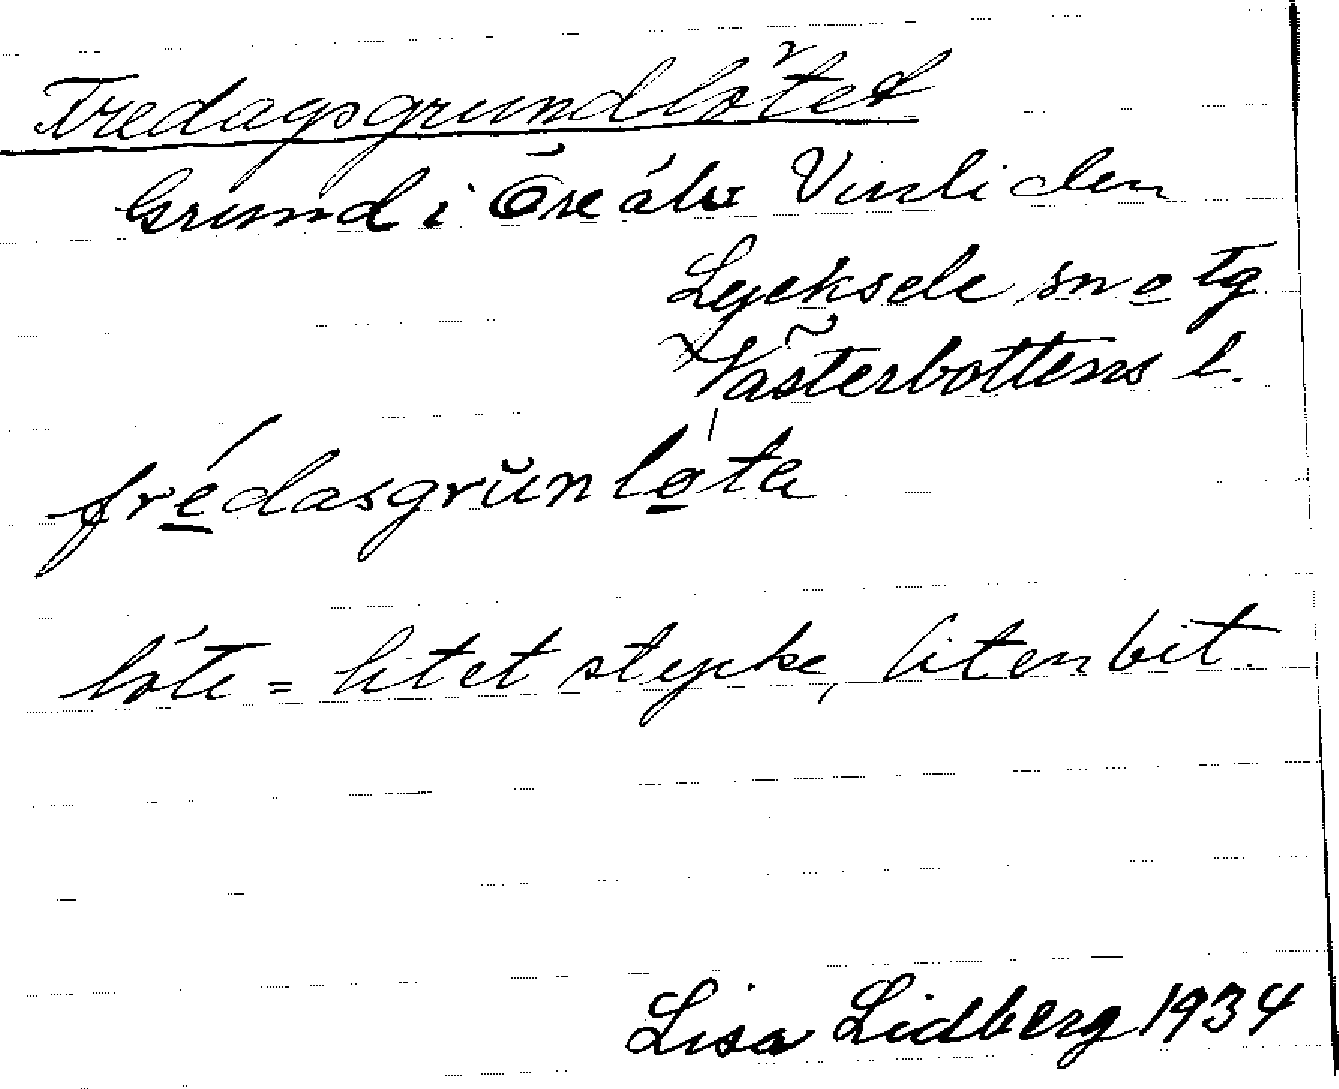 Fredagsgrundlötet
Grund i Öre älv Vinliden
Lycksele sn o tg
Västerbottens l.
frédasgrŭnlo̲ta
löte = litet stycke, liten bit.
Lisa Lidberg 1934